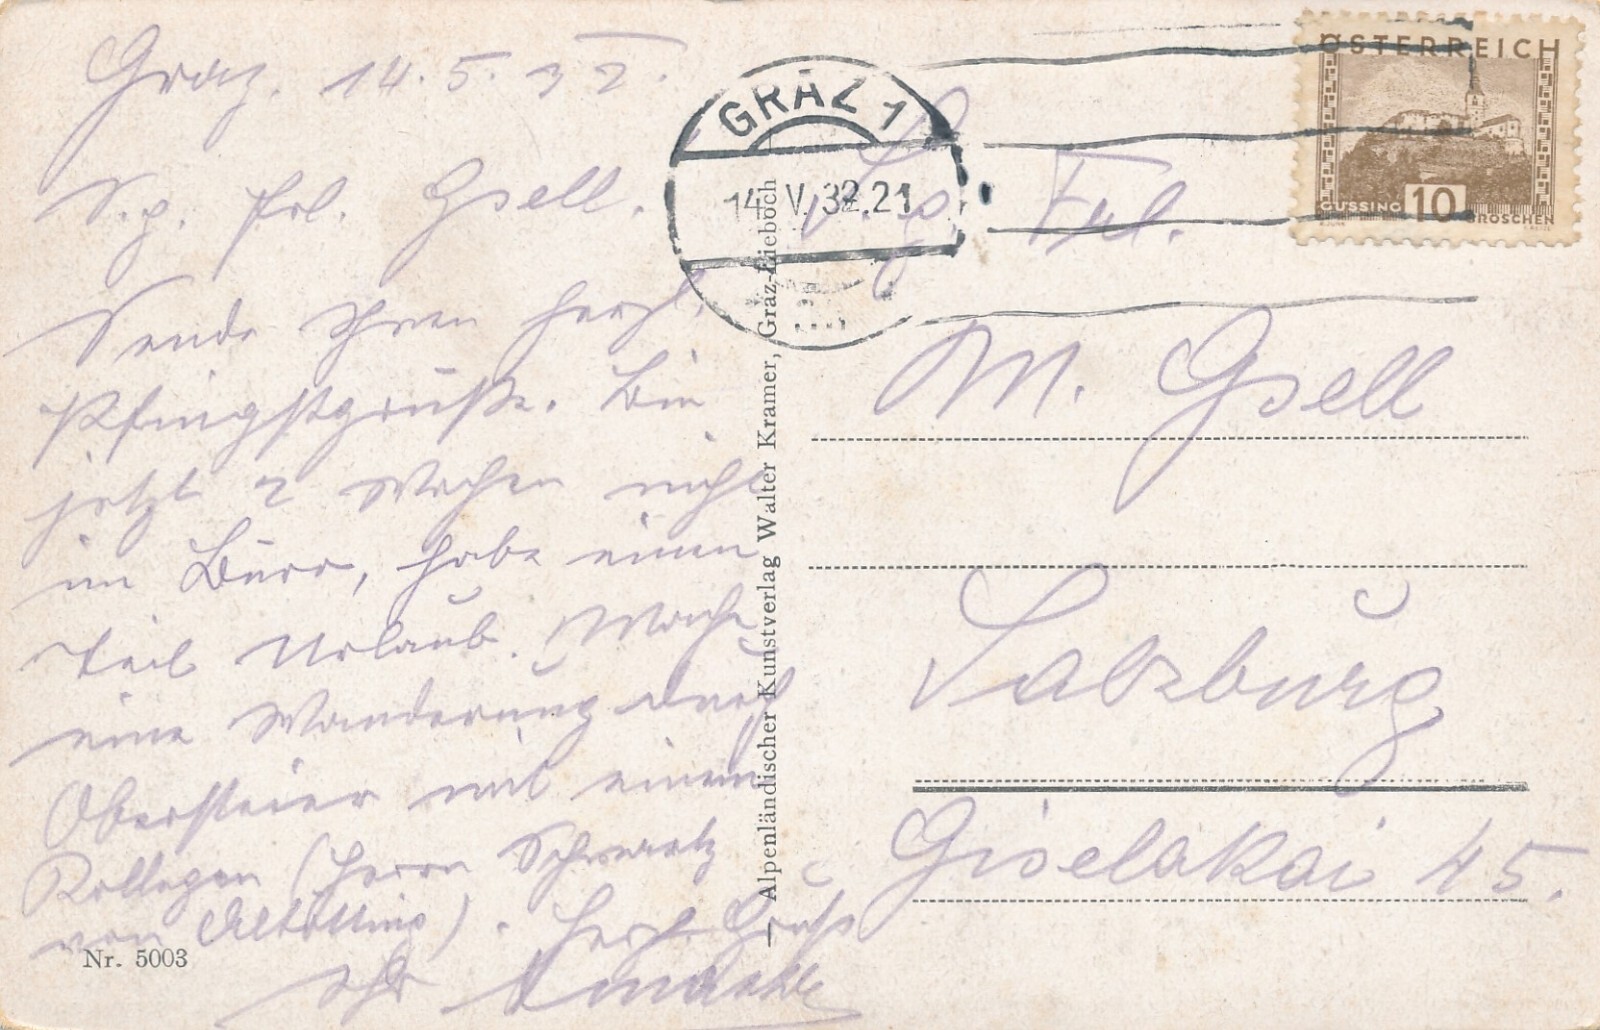 Graz, 14. 5. 32.
S. g. Frl. Gsell.
Sende Ihnen herzl.
Pfingstgrüße. Bin
jetzt 2 Wochen nicht
im Büro, habe einen
Teil Urlaub. Mache
eine Wanderung durch
Obersteier mit einem
Kollegen (Herrn Schwartz
von Altötting). Herzl. Gruß
Ihr
Nr. 5003
— Alpenländischer Kunstverlag Walter Kramer, Graz-Lieboch
GRAZ 1
14. V. 32. 21
ÖSTERREICH
GÜSSING 10 GROSCHEN
S. g. Frl.
M. Gsell
Salzburg
Giselakai 45.